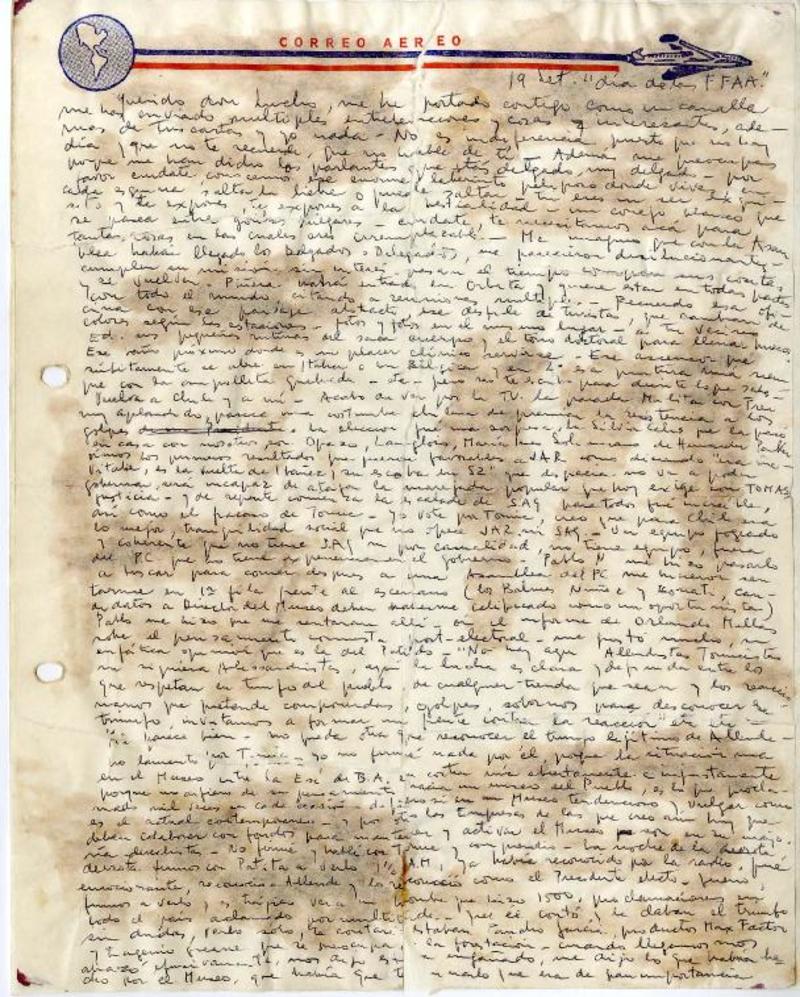 CORREO AEREO
19 Set. "dia de las FFAA."
Querido don Lucho, me he portado contigo como un canalla
me has enviado multiples entretenciones y cosas interesantes, ade-
mas de tus cartas y yo nada - No es indiferencia, puesto que no hay
dia que no te recuerde, que no hable de ti - Ademas me preocupas
porque me han dicho los parlantes que estás delgado, muy delgado - por
favor cuidate
cada esquina salta la liebre o puede saltar - tu eres un ser exqui-
sito y te expones, te expones a la bestialidad - un conejo blanco que
se pasea entre gorilas vulgares - cuidate, te necesitamos acá para
tantas cosas en las cuales eres irremplazable - Me imagino que con la Asam
blea habrán llegado los Delgados o Delegados, me parecieron desilucionantes -
cumplen su misión sin interés - pasan el tiempo compran sus cositas
y se vuelven - Piñera habrá entrado en Orbita y quiere estar en todas partes
con todo el mundo, citando a reuniones multiples - Recuerdo esa ofi-
cina con ese paisaje abstracto, ese desfile de turistas, que cambian de
colores según las estaciones - fotos y fotos en el mismo lugar - a tu vecino
Ed. sus pequeñas rutinas del saca cuerpo y el tono doctoral para llenar huecos
Ese baño proximo donde es un placer clinico servirse - Ese ascensor que
subitamente se abre en Italia o en Belgica y en 2º esa pintura
que con la ampolleta quebrada - etc - pero no te escribo para decirte lo que sabes -
Vuelvo a Chile y a mi - Acabo de ver por la TV. la parada Militar con Frei
muy aplaudido, parece una costumbre chilena de premiar la resistencia a los
golpes. La elección fué una sorpresa, la Silvia Celis que la pasó
en casa con nosotros, con Opazo, Langlois, María Ines Solimano de Hernan
vimos los primeros resultados que fueron favorables a JAR como diciendo "era ine-
vitable, es la vuelta de Ibañez, su escoba en 52" que desgracia no va a poder
gobernar, será incapaz de atajar la marejada popular que hoy exige con TOMAS
justicia - y de repente comienza la escalada de SAG para todos fué increible,
asi como el fracaso de Tomic - Yo voté por Tomic, creo que para Chile era
lo mejor, tranquilidad social que no ofrece JAR ni SAG - Un equipo fogueado
y coherente que no tiene SAG ni por casualidad, no tiene equipo, fuera
del PC que no tiene experiencia en el gobierno - Pablo N me hizo pasarlo
a buscar para comer despues a una Asamblea del PC me hicieron sen
tarme en 1ª fila frente al escenario (los Balmes Nuñez y Bonati, can-
didatos a Director del Museo deben haberme calificado como un oportunista)
Pablo me hizo que me sentaran allí - oí el informe de Orlando Millas
sobre el pensamiento comunista post-electoral - me gustó mucho, su
enfática opinión que es la del Partido - "No hay aqui Allendistas Tomicistas
ni siquiera Alessandristas, aqui la lucha es clara y definida entre los
que respetan un triunfo del pueblo de cualquier tienda que sean y los reaccio
narios que pretende componendas, golpes, sobornos para desconocer ese
triunfo, invitamos a formar un frente contra la reacción" etc etc -
Me parece bien - no queda otra que reconocer el triunfo lejitimo de Allende -
yo lamento por Tomic - yo no firmé nada por él, porque la situación mia
en el Museo entre la Esc. de B.A. en contra mia abiertamente e injustamente
porque un museo del Pueblo, es lo que procla-
mado mil veces en cada ocasión - un Museo tendencioso y vulgar como
es el actual contemporaneo - y por otro las Empresas de las que creo aún hoy que
deben colaborar con fondos para mantener y activar el Museo son en su mayo-
ría derechistas - No firmé y hablé con Tomic y comprendió - La noche de la
derrota fuimos con Patita a verlo 1½ AM, ya habia reconocido por la radio, fué
emocionante, reconocio a Allende y lo reconoció como el Presidente electo - Bueno,
fuimos a verlo, es trágico ver a un hombre que hizo 1500 proclamaciones en
todo el país aclamado por multitudes - que él contó, y le daban el triunfo
sin dudas, verlo solo, lo contaré estaban Pancho Garcia, productos Max Factor
y Eugenio frasse que se preocupa la forestación - cuando llegamos nos
abrazó efusivamente, nos dijo engañado, me dijo lo que habría he-
cho por el Museo, que habia que era de gran importancia